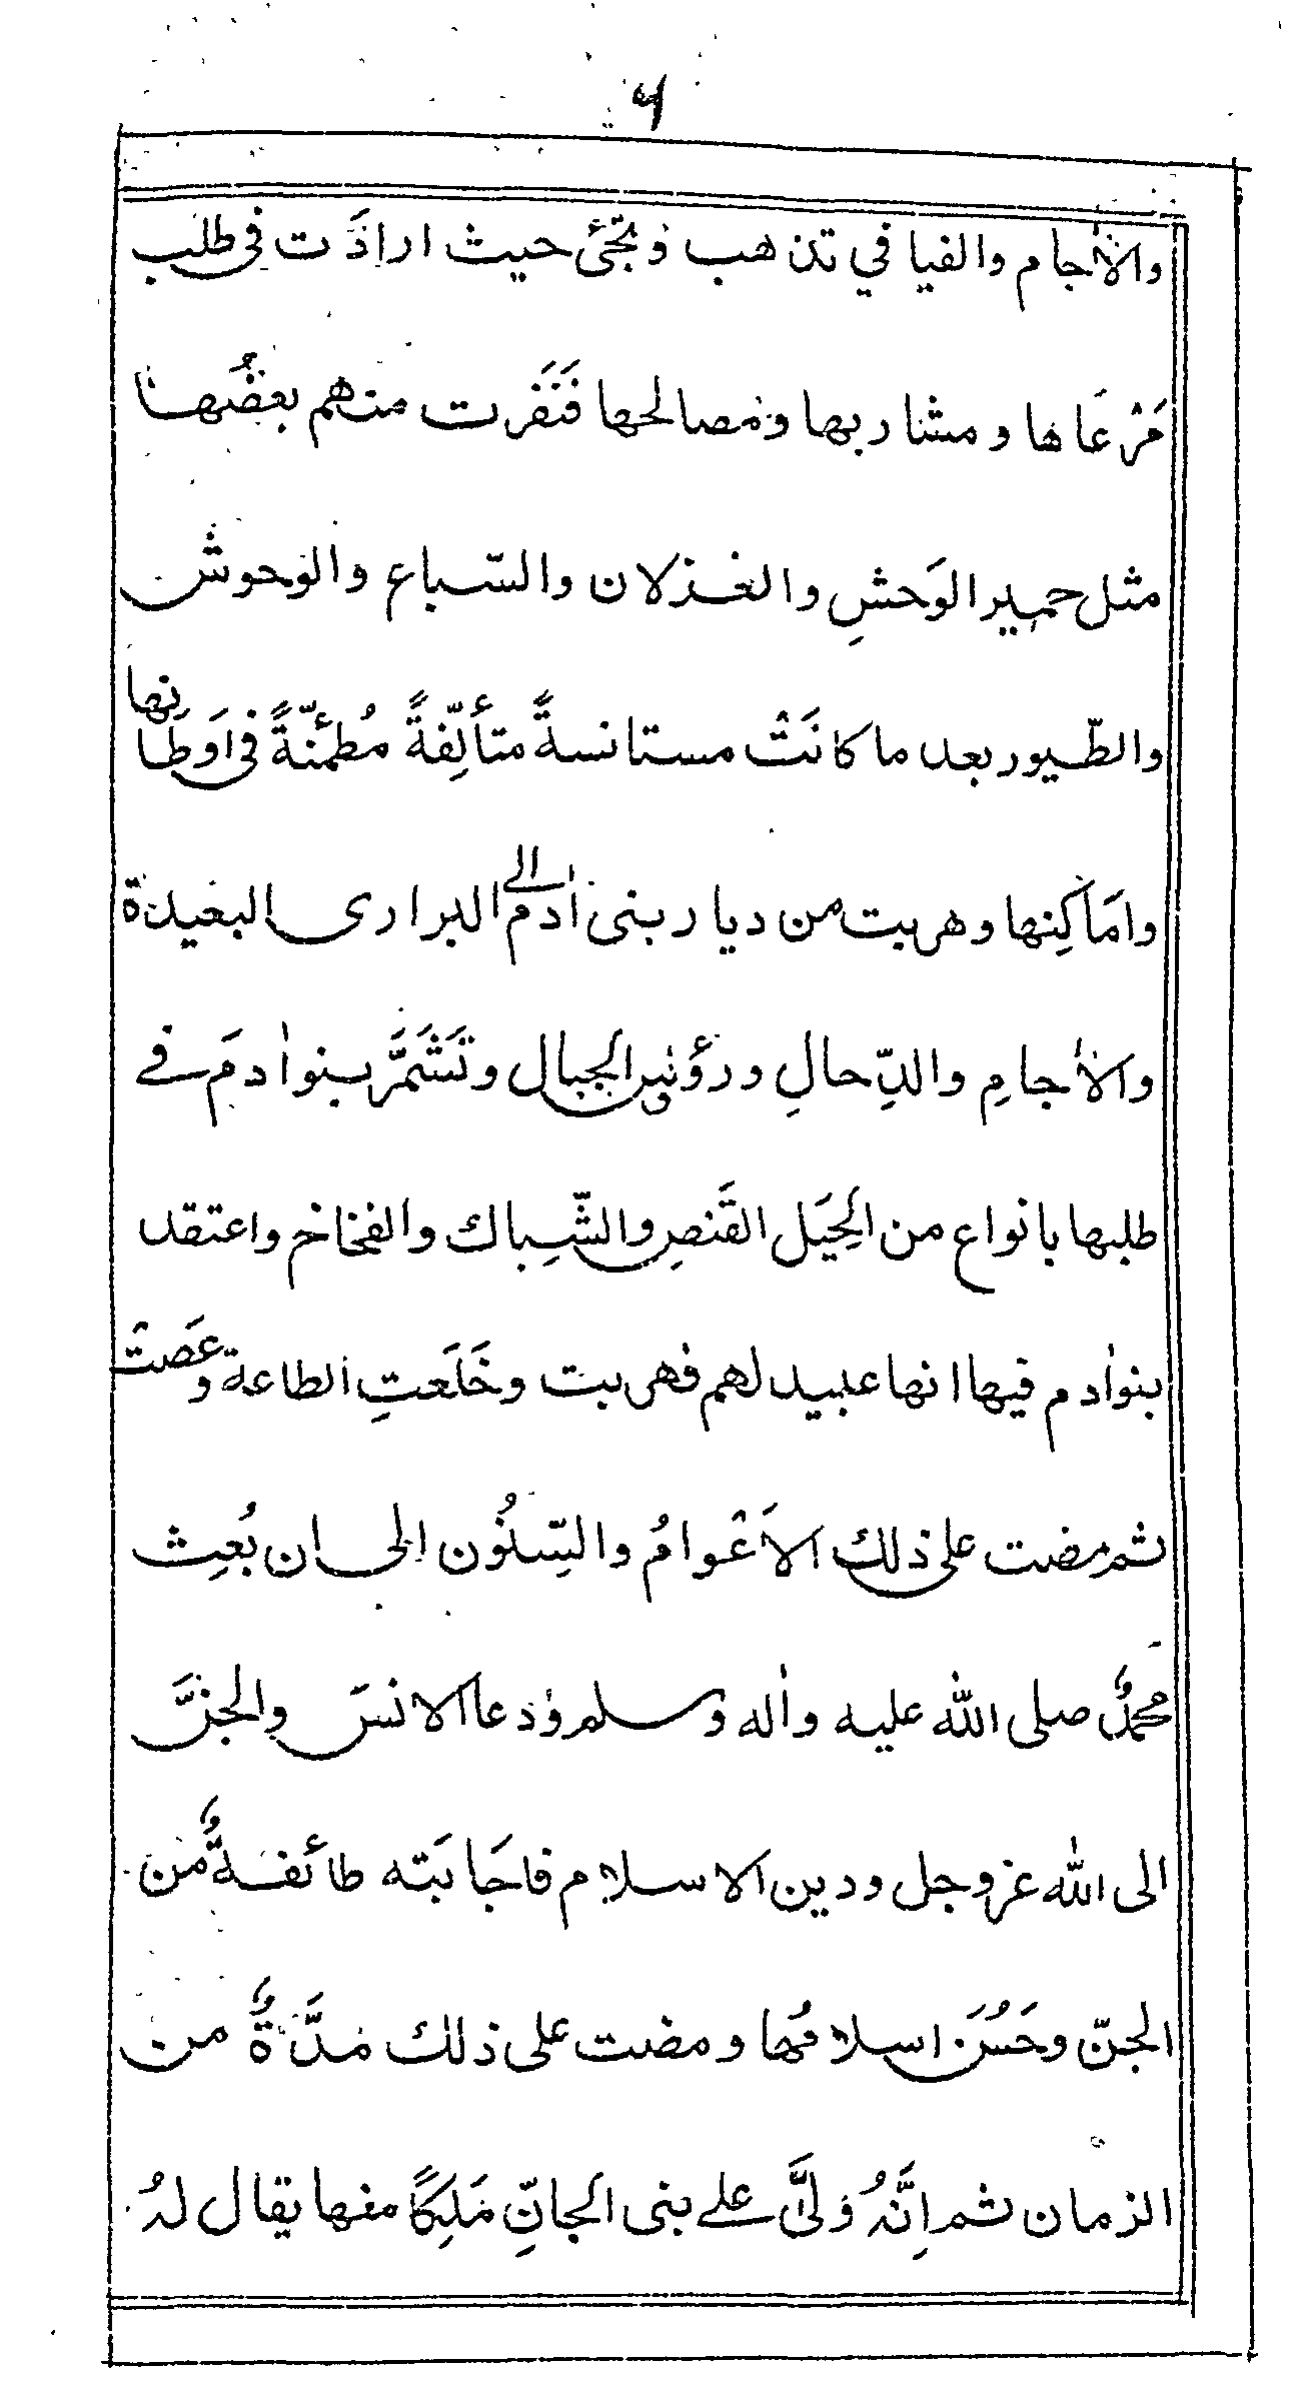 ۶
والأجام والفيافي تذهب وتجئ حيث ارادَت فى طلب
مَرْعَاها ومشاربها ومصالحها فَنَفَرت منهم بعضُها
مثل حمير الوَحشِ والغزلان والسّباع والوحوش
والطّيور بعد ما كانَتْ مستانسةً متألِّفةً مُطمئنّةً فى اوَطَانها
وامَاكِنها وهربت من ديار بنى اٰدم الے البرارى البعيدة
والأجامِ والدِّحالِ ورؤسِ الجبال وتَشَمَّر بنو اٰدمَ فے
طلبها بانواع من الحِيَل القَنصِ والشِّباك والفخاخ واعتقد
بنو اٰدم فيها انها عبيد لهم فهربت وخَلَعتِ الطاعة وعَصتْ
ثم مضت على ذلك الاَعْوامُ والسِّنُون الى ان بُعِث
محمدٌ صلى الله عليه واٰله وسلم ودعا الانسَ والجنَّ
الى الله عز وجل ودين الاسلام فاجَابَته طائفةٌ من
الجنّ وحَسُنَ اسلامُها ومضت على ذلك مدَّةٌ من
الزمان ثم اِنَّهُ ولىَّ علے بنى الجانِّ مَلِكًا منها يقال لهُ